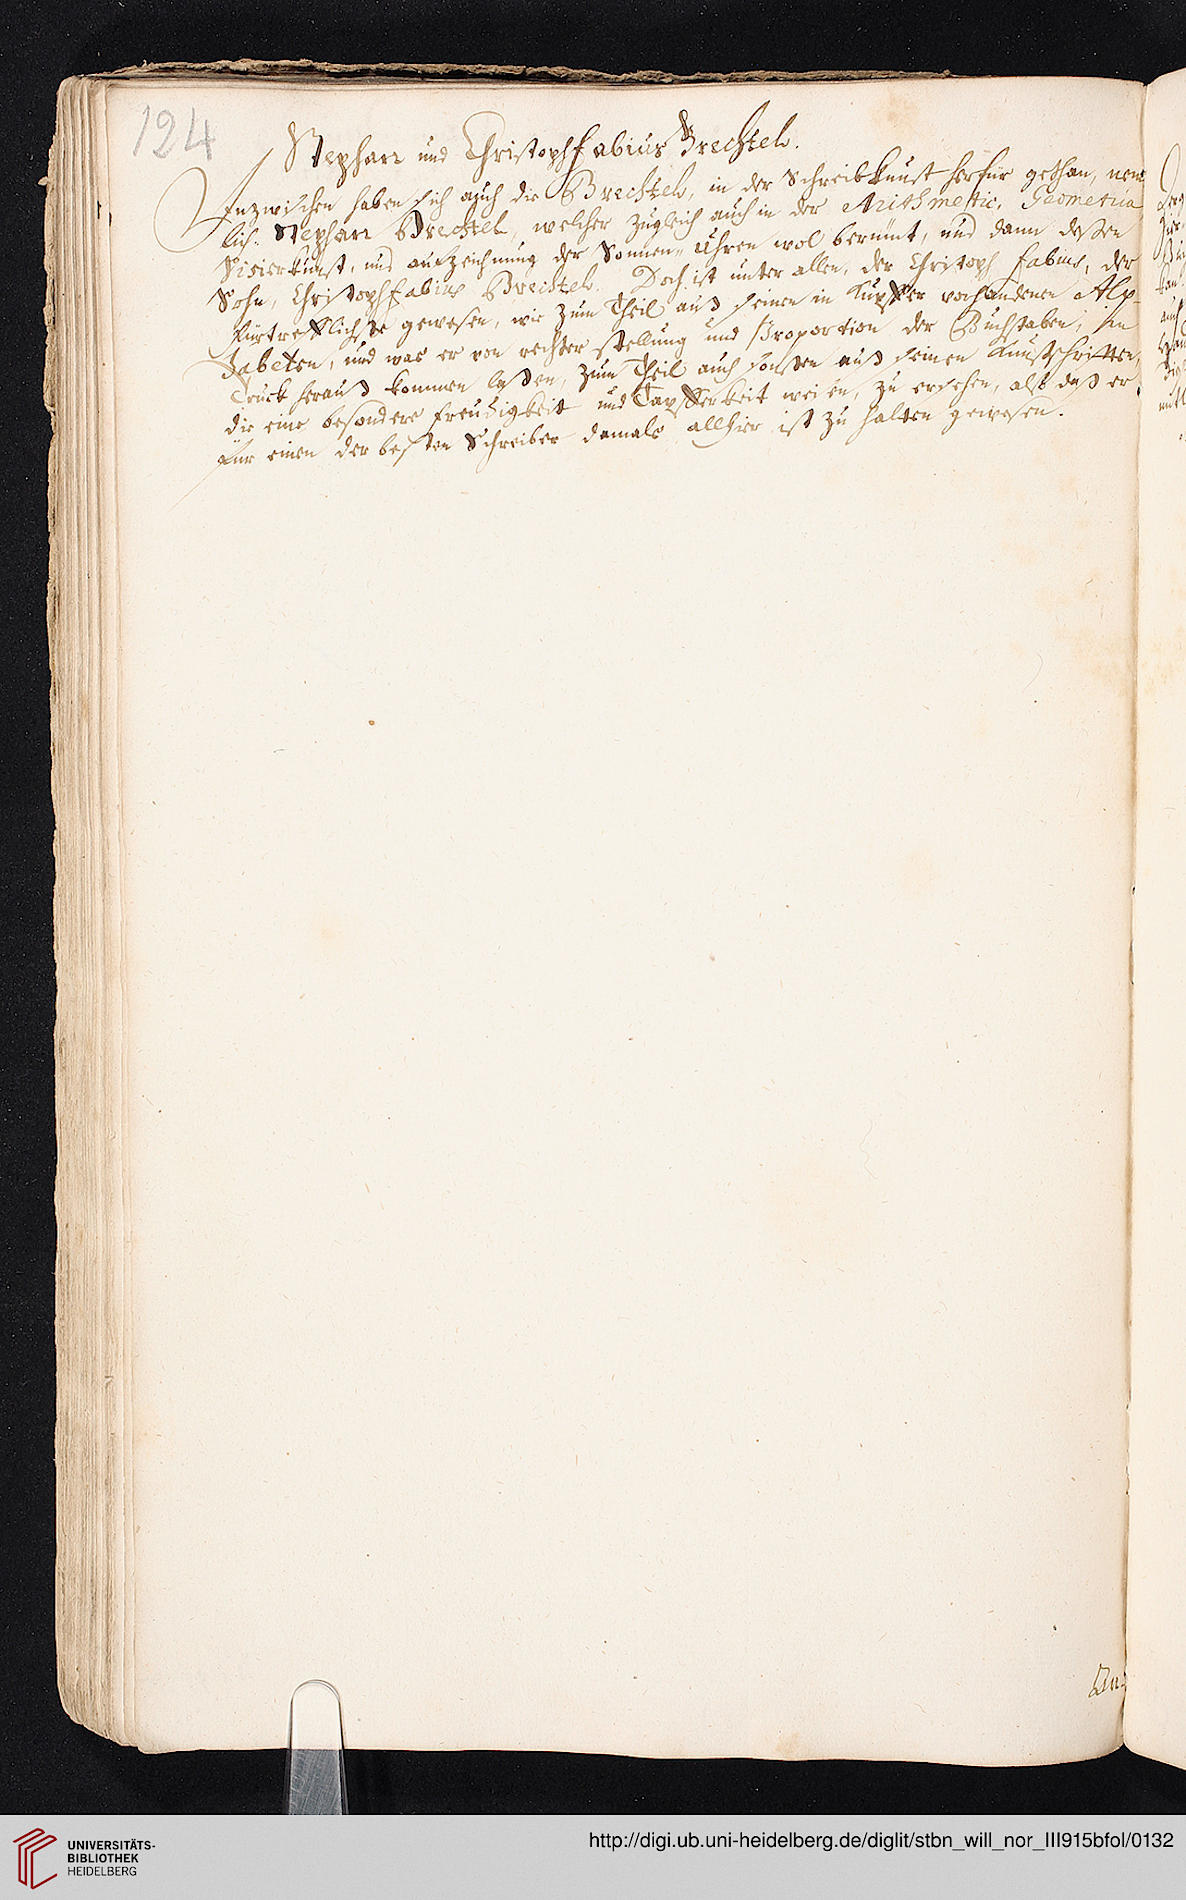 124
Stephan und Christoph Fabius Brechtel.
Inzwischen haben sich auch die Brechtel, in der Schreibkunst herfür gethan, nem
lich: Stephan Brechtel, welcher zugleich auch in der Arithmetic, Geometria
Visierkunst, und aufzeichnung der Sonnen-Uhren wol berümt, und dann deßen
Sohn, Christoph Fabius Brechtel. Doch ist unter allen, der Christoph Fabius, der
fürtrefflichste gewesen, wie zum Theil auß seinen in Kupffer vorhandenen Alp-
habeten, und was er von rechter stellung und Proportion der Buchstaben, in
Truck herauß kommen laßen, zum Theil auch sonsten auß seinen Kunstschrifften,
die eine besondere freudigkeit und Tapfferkeit weisen, zu ersehen, alß daß er
für einen der besten Schreiber damals allhier ist zu halten gewesen.
UNIVERSITÄTS-
BIBLIOTHEK
HEIDELBERG
http://digi.ub.uni-heidelberg.de/diglit/stbn_will_nor_III915bfol/0132